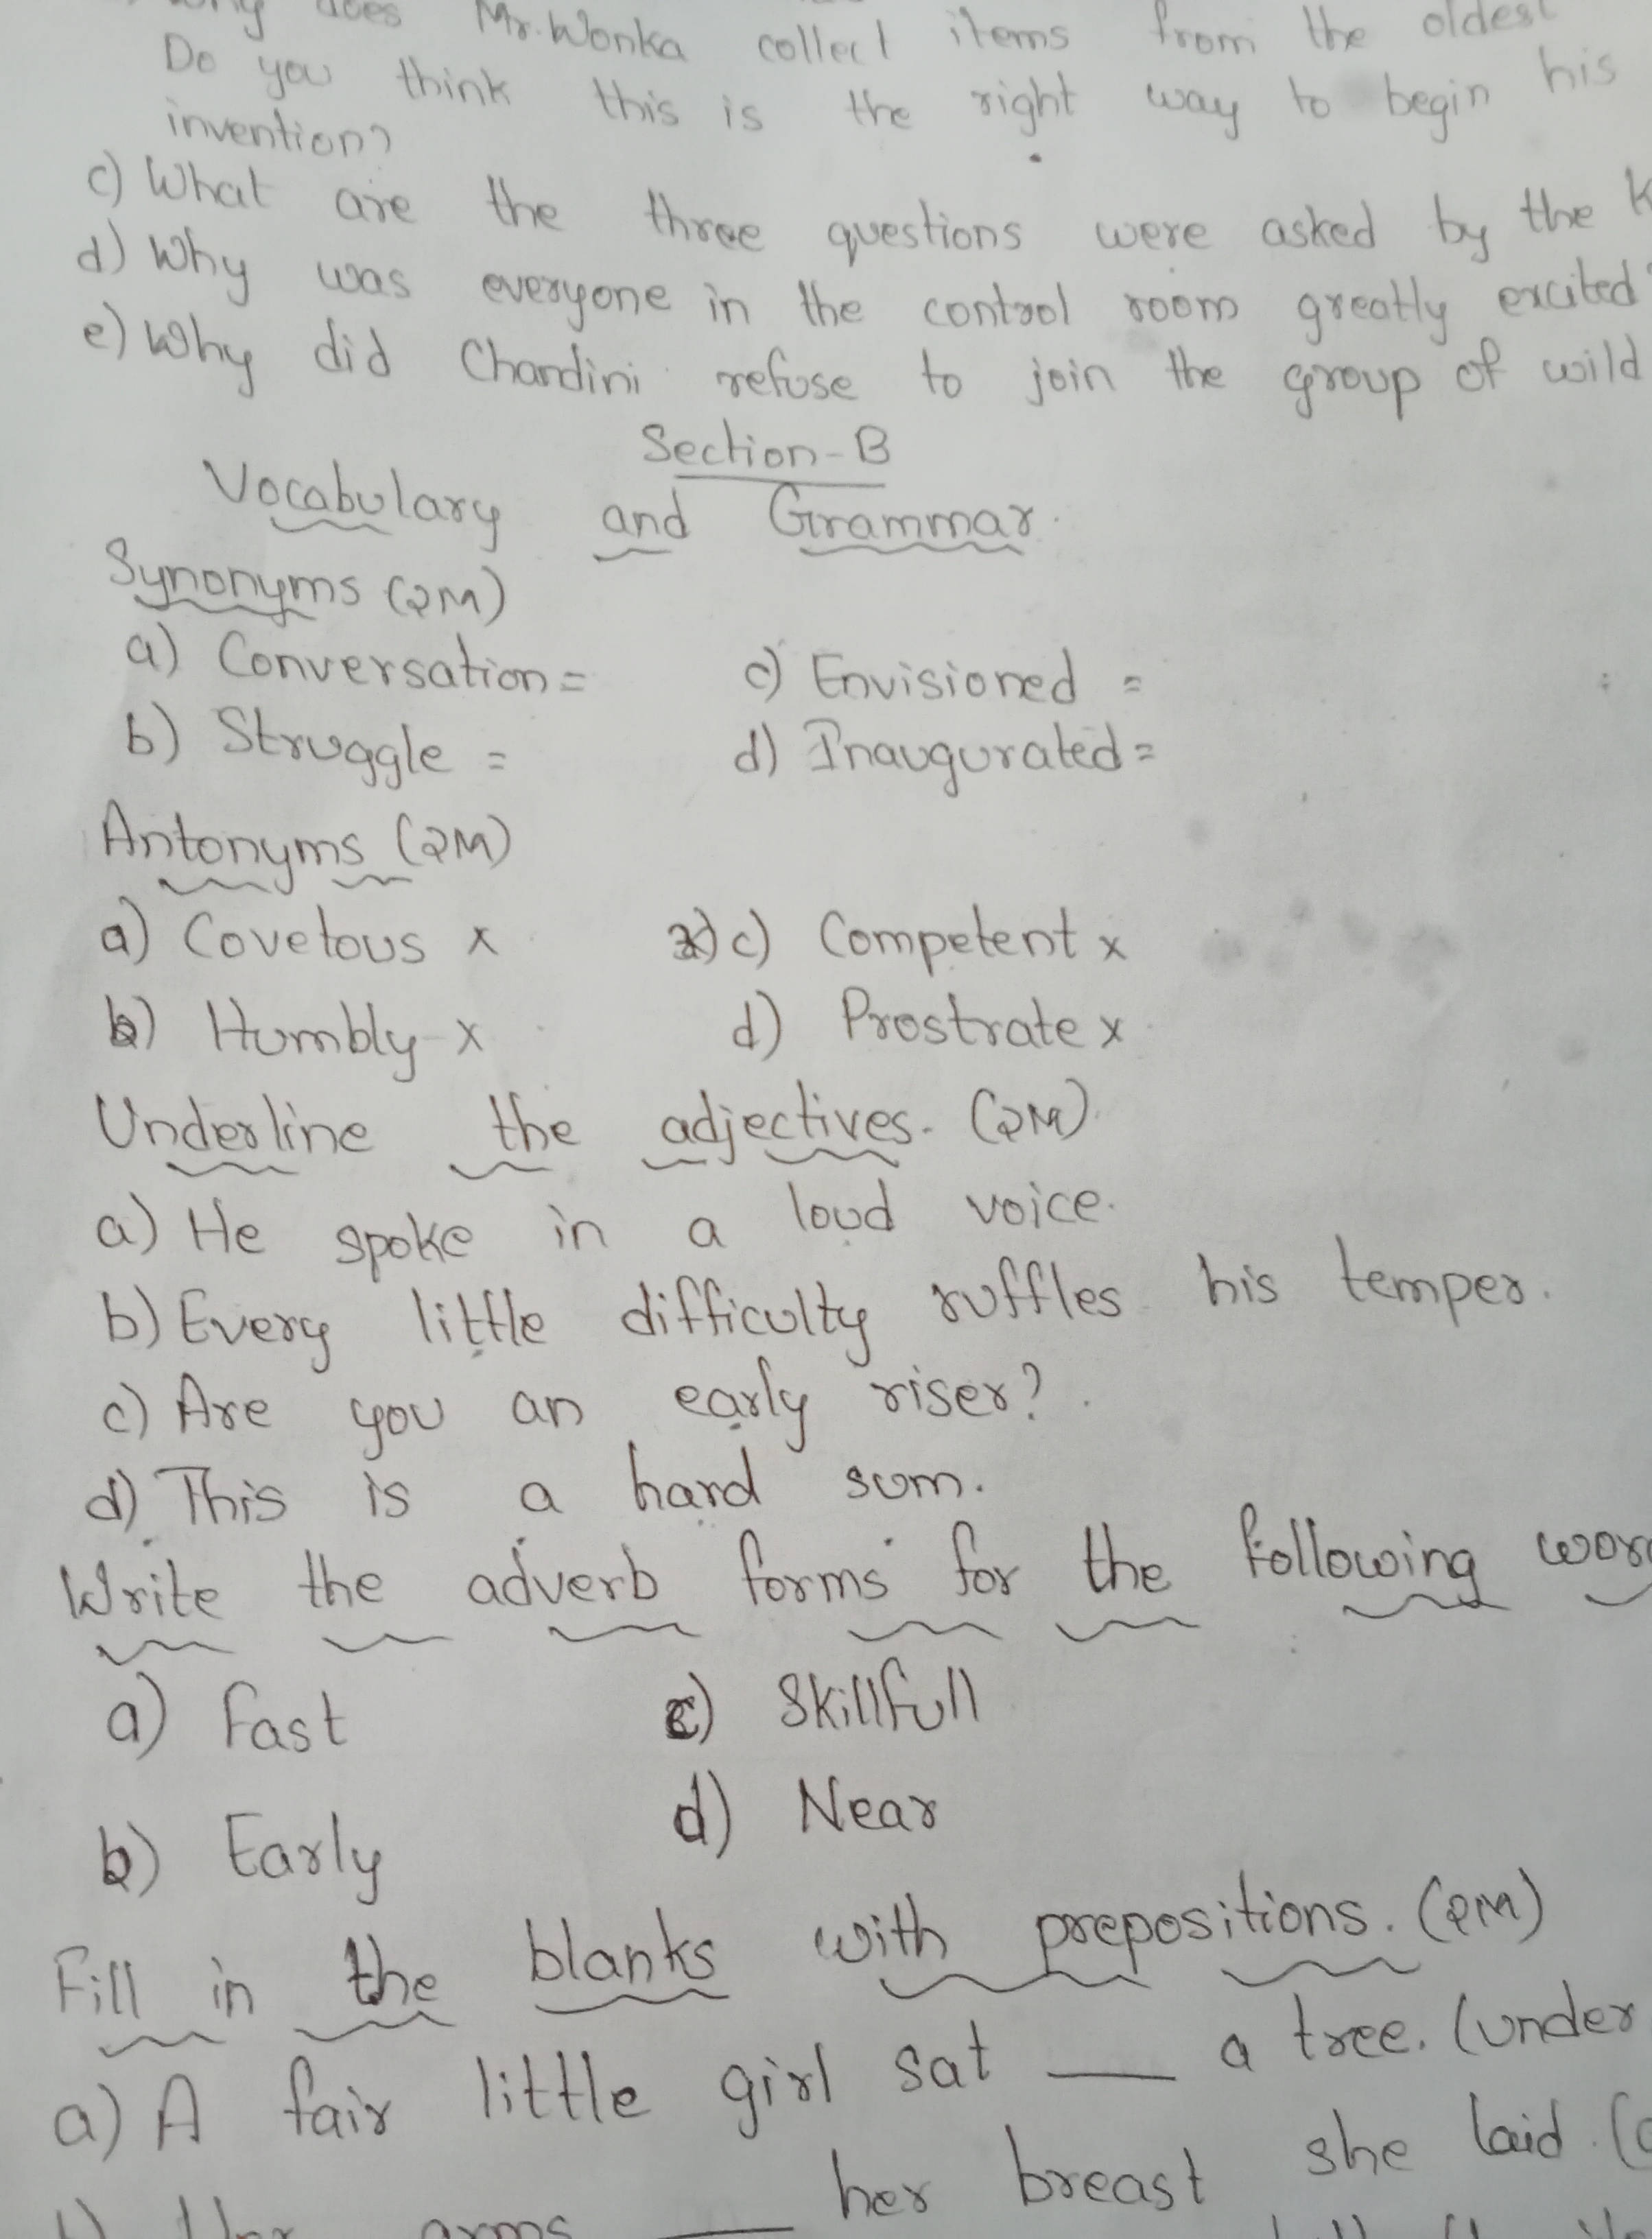 does Mr. Wonka collect items from the oldest
Do you think this is the right way to begin his
invention?
c) What are the three questions were asked by the
d) Why was everyone in the control room greatly excited?
e) Why did Chandini refuse to join the group of wild
Section-B
Vocabulary and Grammar.
Synonyms (2M)
a) Conversation = c) Envisioned =
b) Struggle = d) Inaugurated =
Antonyms (2M)
a) Covetous x c) Competent x
b) Humbly x d) Prostrate x
Underline the adjectives. (2M)
a) He spoke in a loud voice.
b) Every little difficulty ruffles his temper.
c) Are you an early riser?
d) This is a hard sum.
Write the adverb forms for the following
a) Fast c) Skillfull
b) Early d) Near
Fill in the blanks with prepositions. (2M)
a) A fair little girl sat ___ a tree. (under
arms ___ her breast she laid. (